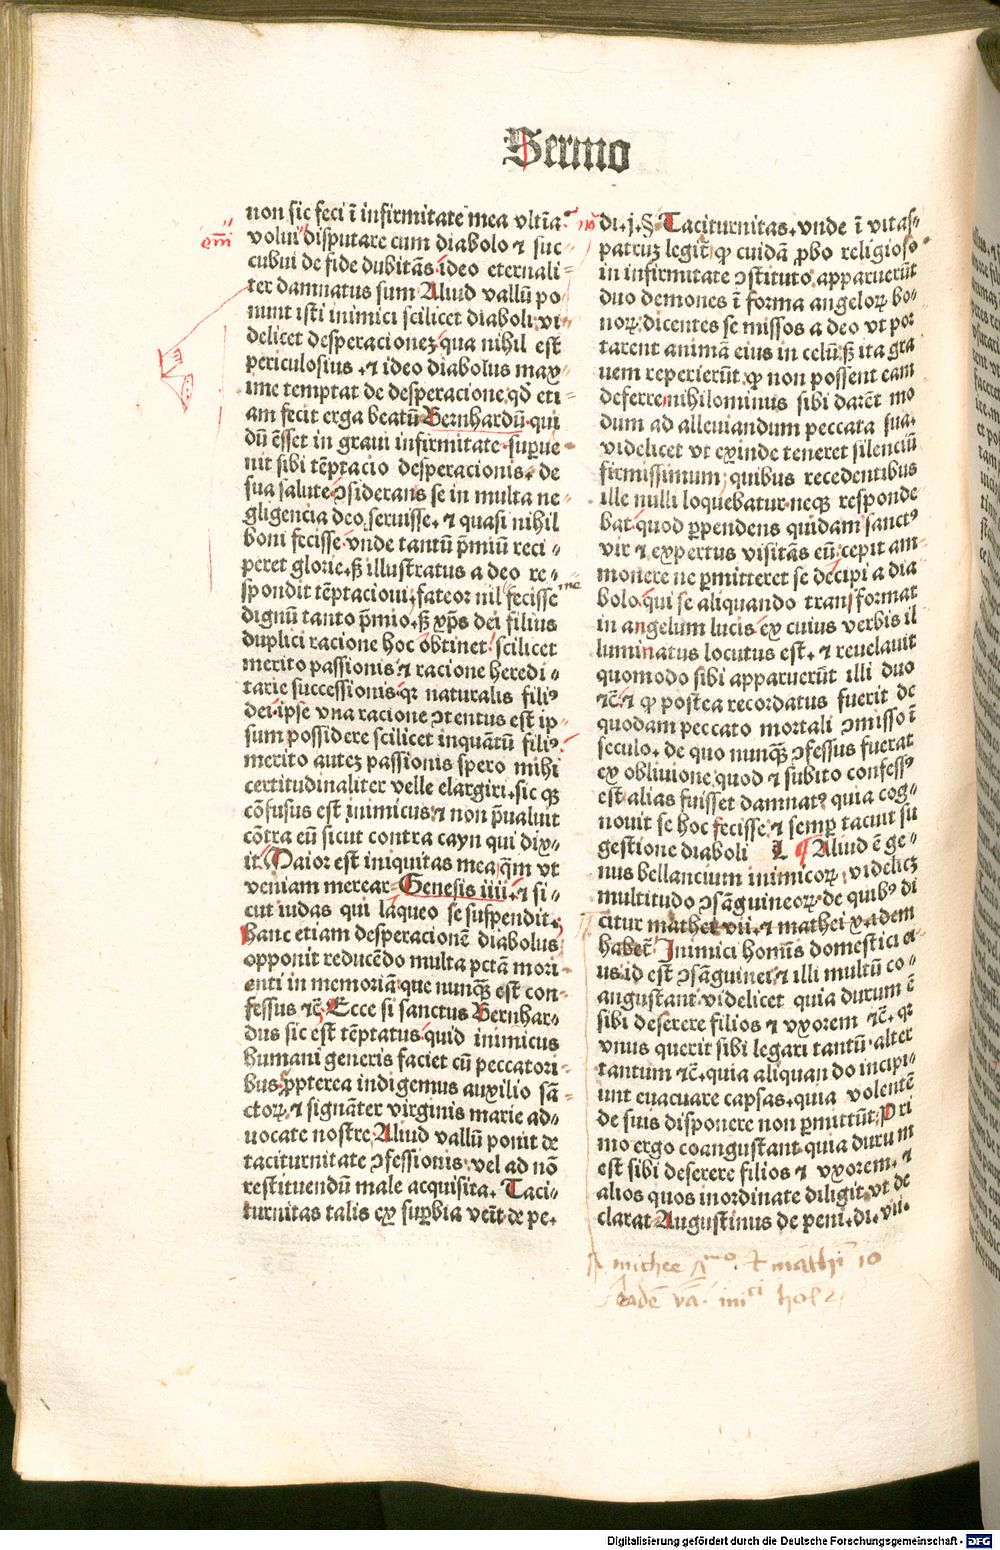 Sermo
non sic feci ī infirmitate mea vltīa
volui disputare cum diabolo ⁊ suc⸗
cubui de fide dubitās ideo eternali⸗
ter damnatus sum Aliud vallū po
nunt isti inimici scilicet diaboli vi⸗
delicet desperacionez qua nihil est
periculosius ⁊ ideo diabolus max⸗
ime temptat de desperacione qđ eti⸗
am fecit erga beatū Bernhardū qui
dū esset in graui infirmitate superue⸗
nit sibi tēptacio desperacionis. de
sua salute ꝯsiderans se in multa ne⸗
gligencia deo seruisse. ⁊ quasi nihil
boni fecisse vnde tantū p̄miū reci⸗
peret glorie. sꝫ illustratus a deo re⸗
spondit tēptacioni. fateor nil fecisse me
dignū tanto p̄mio. sꝫ xp̄s dei filius
duplici racione hoc obtinet scilicet
merito passionis ⁊ racione heredi⸗
tarie successionis qꝛ naturalis fili⁹
dei ipse vna racione ꝯtentus est ip⸗
sum possidere scilicet inquātū fili⁹
merito autez passionis spero mihi
certitudinaliter velle elargiri. sic qꝫ
cōfusus est inimicus ⁊ non p̄ualuit
cōtra eū sicut contra cayn qui dix⸗
it Maior est iniquitas mea q̄m vt
veniam merear Genesis iiii. ⁊ si⸗
cut iudas qui laqueo se suspendit.
hanc etiam desperacionē diabolus
opponit reducēdo multa pctā mori⸗
enti in memoriā que nunqꝫ est con⸗
fessus ⁊c̄ Ecce si sanctus Bernhar⸗
dus sic est tēptatus quid inimicus
humani generis faciet cū peccatori⸗
bus ꝓpterea indigemus auxilio sā⸗
ctorꝝ ⁊ signāter virginis marie ad⸗
uocate nostre Aliud vallū ponit de
taciturnitate ꝯfessionis vel ad nō
restituendū male acquisita. Taci⸗
turnitas talis ex suꝑbia venīt de pe.
di. j. §. Taciturnitas. vnde ī vitas⸗
patruꝫ legit̄ ꝙ cuidā ꝓbo religioso
in infirmitate ꝯstituto apparuerūt
duo demones ī forma angelorꝝ bo⸗
norꝝ dicentes se missos a deo vt por
tarent animā eius in celū sꝫ ita gra
uem reperierūt ꝙ non possent eam
deferre nihilominus sibi darēt mo
dum ad alleuiandum peccata sua.
videlicet vt exinde teneret silenciū
firmissimum quibus recedentibus
ille nulli loquebatur neqꝫ responde
bat quod ꝑpendens quidam sanct⁹
vir ⁊ expertus visitās eū cepit am⸗
monere ne ꝑmitteret se decipi a dia
bolo qui se aliquando transformat
in angelum lucis ex cuius verbis il
luminatus locutus est. ⁊ reuelauit
quomodo sibi apparuerūt illi duo
⁊c̄ ⁊ ꝙ postea recordatus fuerit de
quodam peccato mortali ꝯmisso ī
seculo. de quo nunqꝫ ꝯfessus fuerat
ex obliuione quod ⁊ subito confess⁹
est alias fuisset damnat⁹ quia cog⸗
nouit se hoc fecisse ⁊ semꝑ tacuit su
gestione diaboli L Aliud ē ge⸗
nus bellancium inimicorꝝ videlicꝫ
multitudo ꝯsāguineorꝝ de quib⁹ di
citur mathei vii. ⁊ mathei x. adem
habet̄ Inimici homīs domestici ei⸗
us id est ꝯsāguinei ⁊ illi multū co⸗
angustant videlicet quia durum ē
sibi deserere filios ⁊ vxorem ⁊c̄. qꝛ
vnus querit sibi legari tantū alter
tantum ⁊c̄. quia aliquando incipi⸗
unt euacuare capsas. quia volentē
de suis disponere non ꝑmittūt. Pri
mo ergo coangustant quia durum
est sibi deserere filios ⁊ vxorem. ⁊
alios quos inordinate diligit vt de
clarat Augustinus de peni. di. vii.
michee ⁊ mathi 10
Digitalisierung gefördert durch die Deutsche Forschungsgemeinschaft - DFG